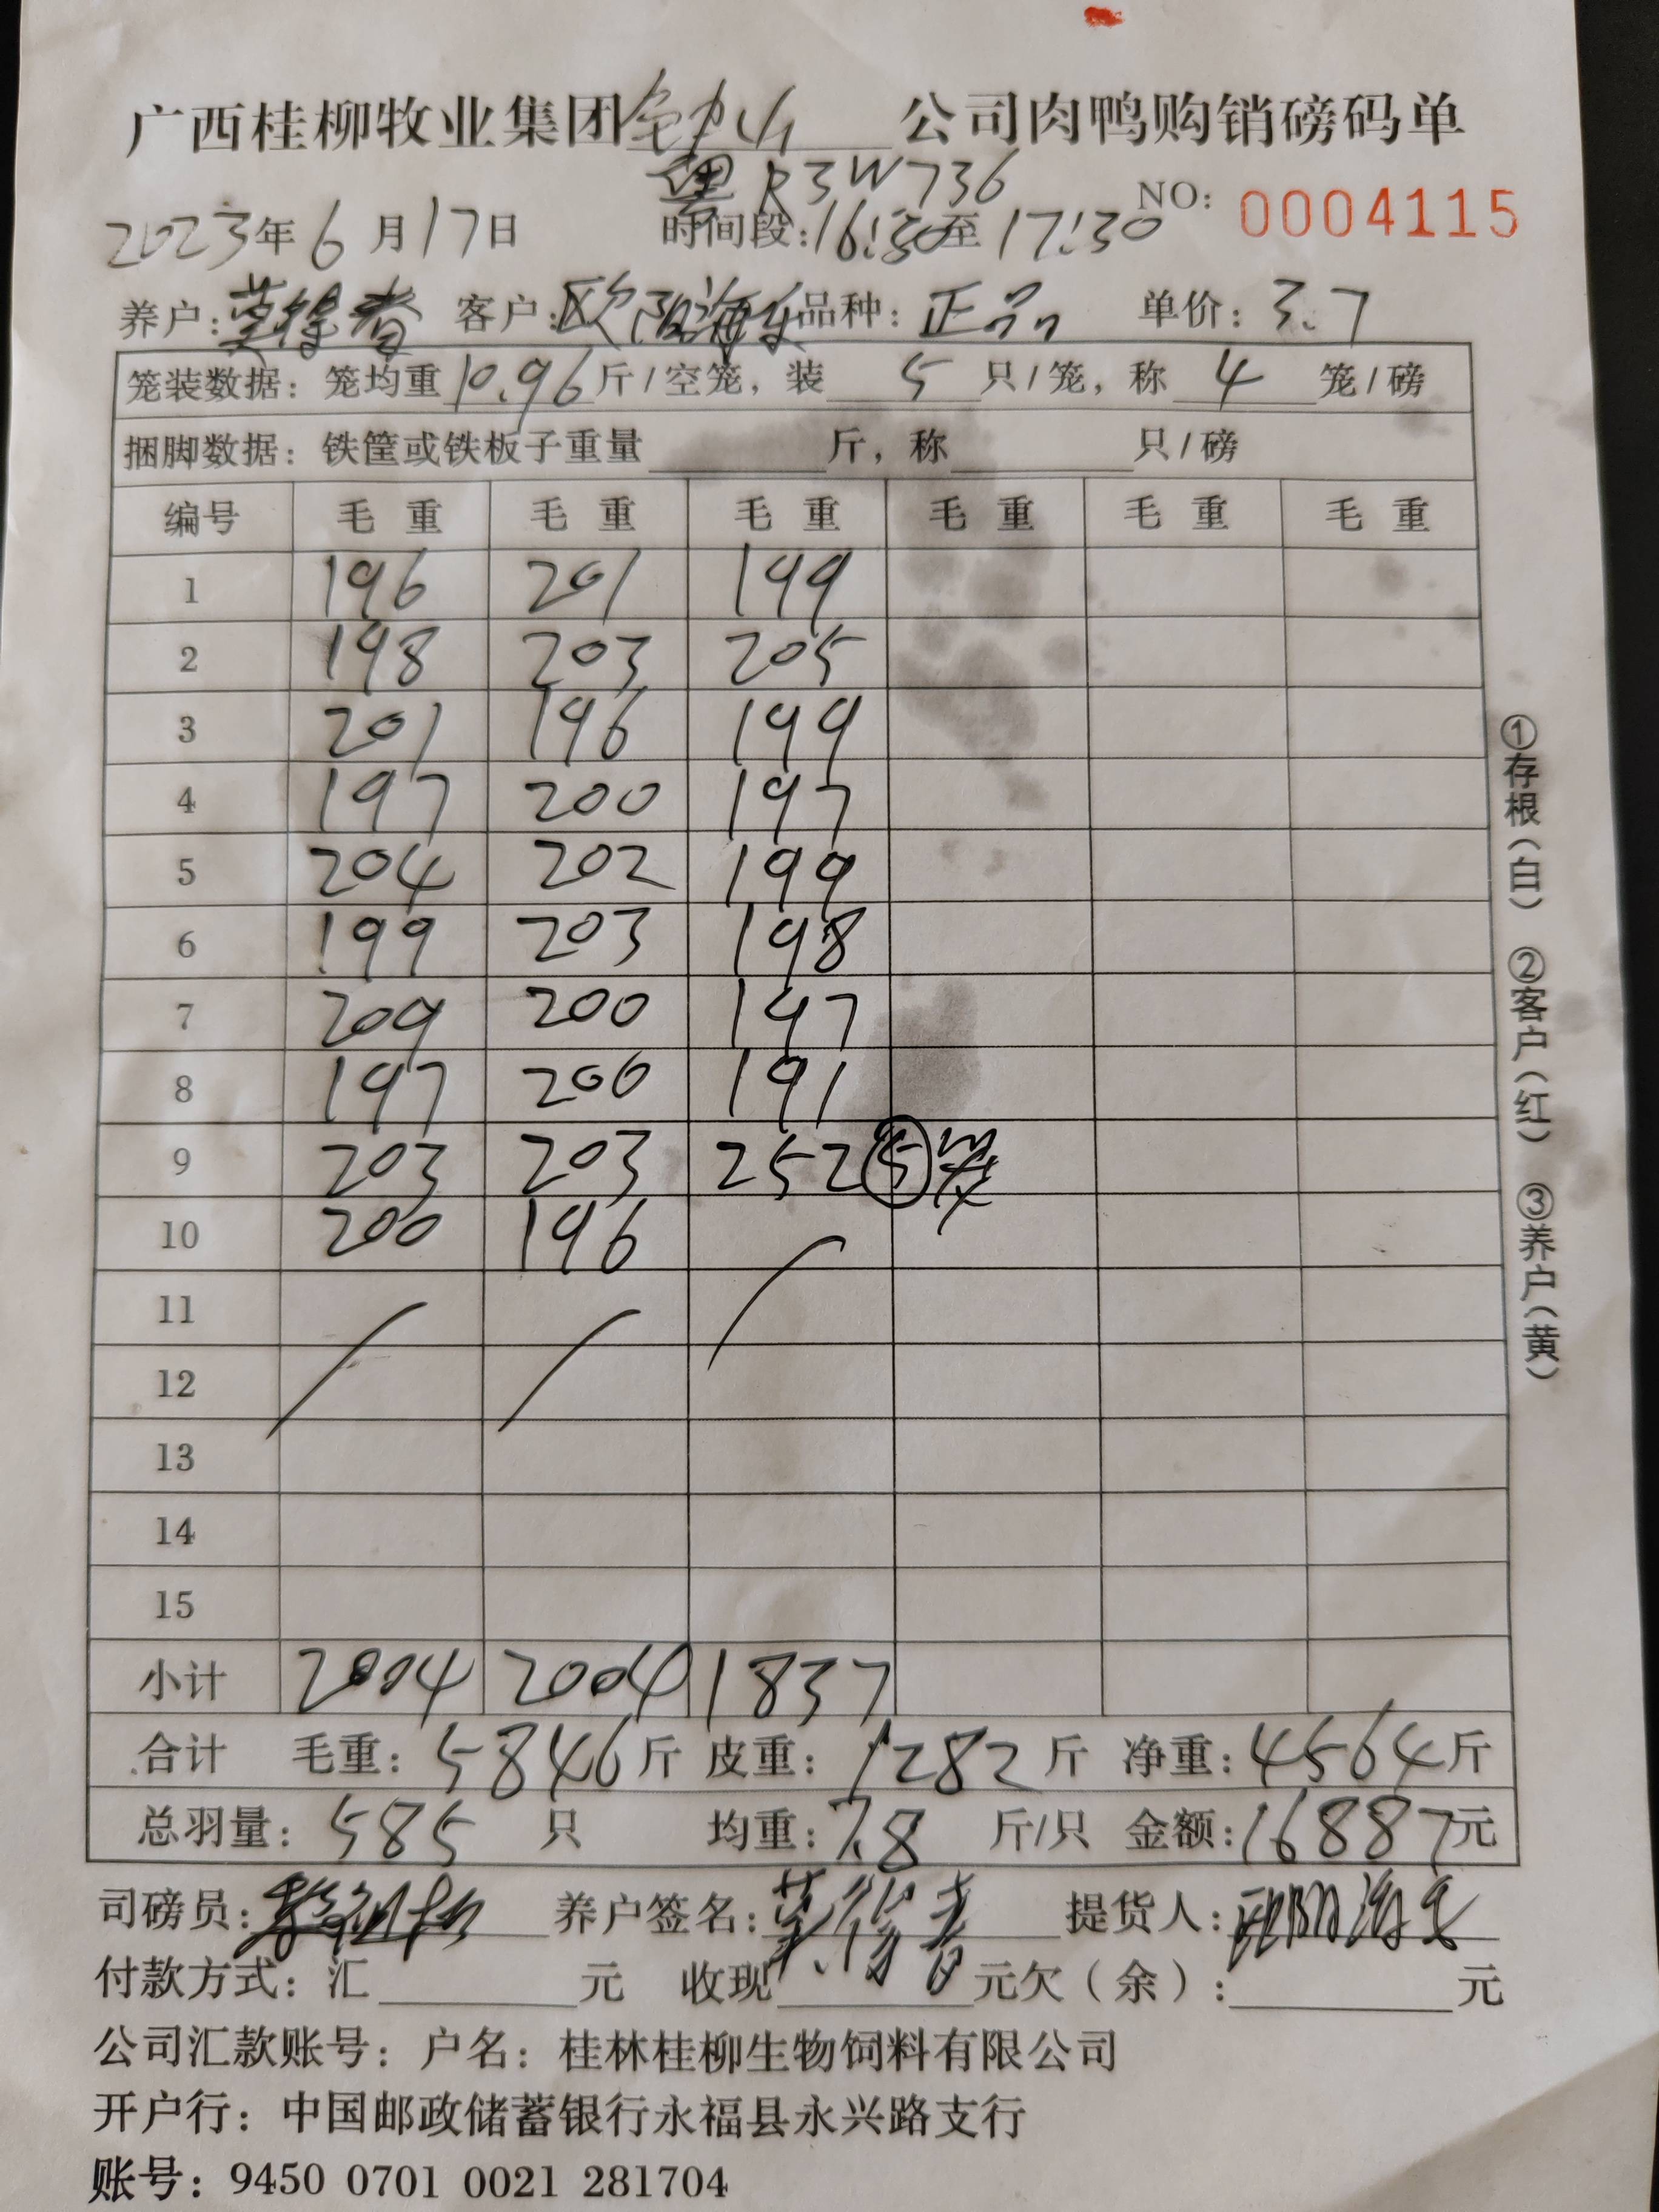 广西桂柳牧业集团钟山公司肉鸭购销磅码单
粤R3W736
NO: 0004115
2023年6月17日 时间段:16:30至17:30
养户: 客户:欧阳海 品种:正品 单价:3.7
笼装数据:笼均重10.96斤/空笼,装5只/笼,称4笼/磅
捆脚数据:铁筐或铁板子重量 斤,称 只/磅
编号 毛重 毛重 毛重 毛重 毛重 毛重
1 196 201 199
2 198 203 205
3 201 196 199
4 197 200 197
5 204 202 199
6 199 203 198
7 209 200 197
8 197 200 191
9 203 203 252 ⑤笼
10 200 196
11
12
13
14
15
小计 2004 2004 1837
合计 毛重:5846斤 皮重:1282斤 净重:4564斤
总羽量:585只 均重:7.8斤/只 金额:16887元
司磅员: 养户签名: 提货人:
付款方式:汇 元 收现 元欠(余): 元
公司汇款账号:户名:桂林桂柳生物饲料有限公司
开户行:中国邮政储蓄银行永福县永兴路支行
账号:9450 0701 0021 281704
①存根(白) ②客户(红) ③养户(黄)